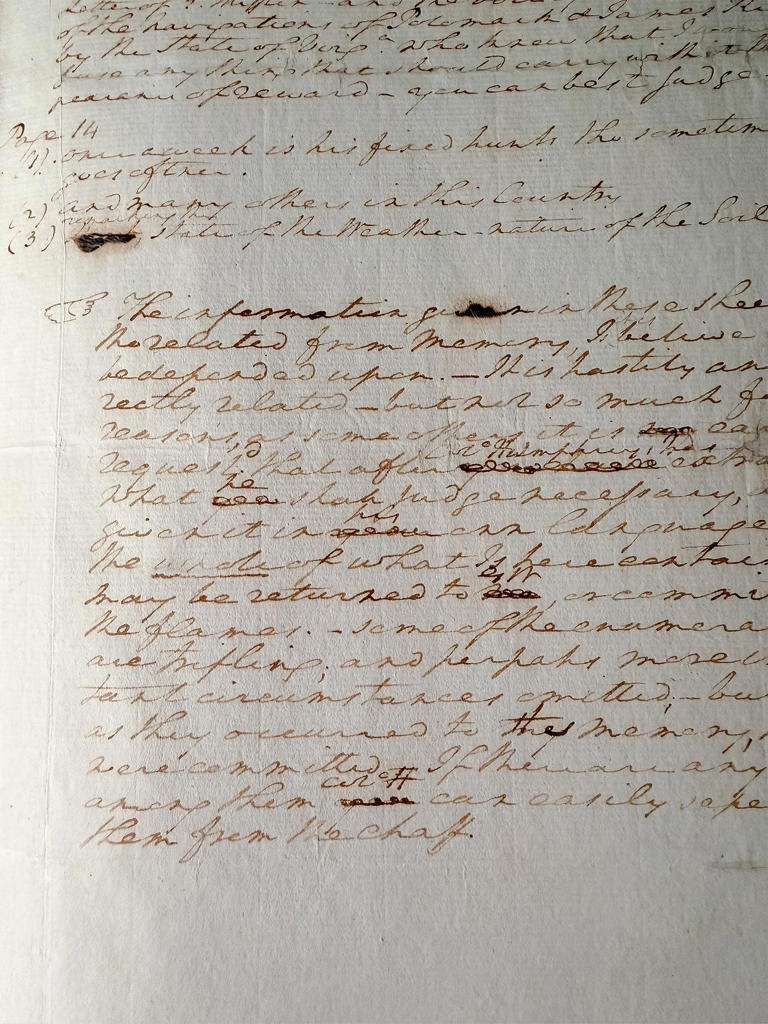 Letter of G. Mifflin - and the
of the navigations of Potomack & James
by the State of Virga. who knew that I would
fuse any thing that should carry with it the
pearance of reward - you can best judge.
Page 14
(1) once a week is his fixed hunts tho sometim
goes oftner.
(2) and many others in this Country
(3) remarking the
state of the Weather - nature of the Soil
The information given in these shee
tho related from Memory, I believe
be depended upon. - It is hastily an
rectly related - but not so much fo
reasons, as some others, it is ear
request'd that after Colo. Humphreys has extra
what he shall judge necessary,
given it in his own language
the whole of what is here contain
may be returned to G. W, or commi
the flames. - some of the enumera
are trifling; and perhaps more i
tant circumstances omitted; - bu
as they occurred to the memory,
were committed - If there are any
among them Colo. H can easily sepe
them from the chaff.